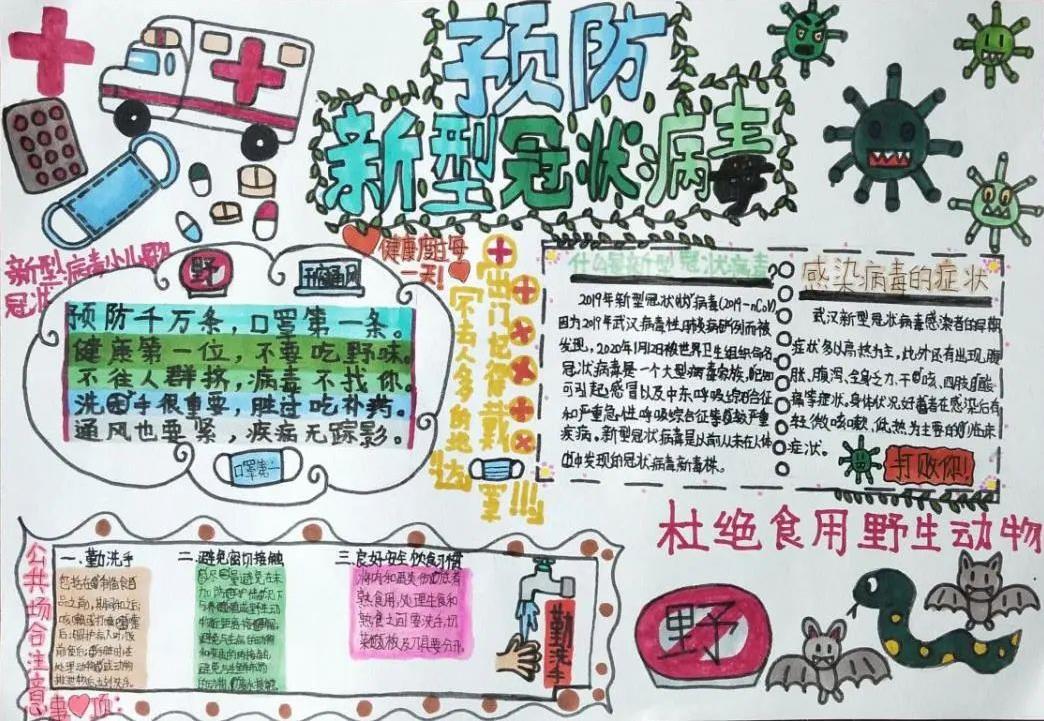 预防
新型冠状病毒
新型
冠状
病毒小儿歌
野
开窗通风
预防千万条，口罩第一条。
健康第一位，不要吃野味。
不往人群挤，病毒不找你。
洗手很重要，胜过吃补药。
通风也要紧，疾病无踪影。
口罩第一
健康度过每
一天！
出门记得戴
罩!!!
不去人多的地
什么是新型冠状病毒？
2019年新型冠状病毒(2019-nCoV)
因为2019年武汉病毒性肺炎病例而被
发现，2020年1月12日被世界卫生组织命名
冠状病毒是一个大型病毒家族，已知
可引起感冒以及中东呼吸综合征
和严重急性呼吸综合征等较严重
疾病。新型冠状病毒是以前从未在人体
中发现的冠状病毒新毒株。
感染病毒的症状
武汉新型冠状病毒感染者的早期
症状多以高热为主，此外还有出现腹
胀、腹泻、全身乏力、干咳、四肢酸
痛等症状。身体状况好者在感染后有
轻微咳嗽、低热为主要的临床
症状。
打败你！
杜绝食用野生动物
野
公共场合注意事项：
一.勤洗手
包括在制备食
品之前，期间和之
后；照护病人时；饭
前便后；
处理动物或动物
排泄物后立刻洗手。
二.避免密切接触
尽量避免在未
加防护情况下
与野生动
物近距离接触，
避免与生病的动物
三.良好安全饮食习惯
熟食用，处理生食和
熟食之间要洗手，切
菜板及刀具要分开。
勤洗手